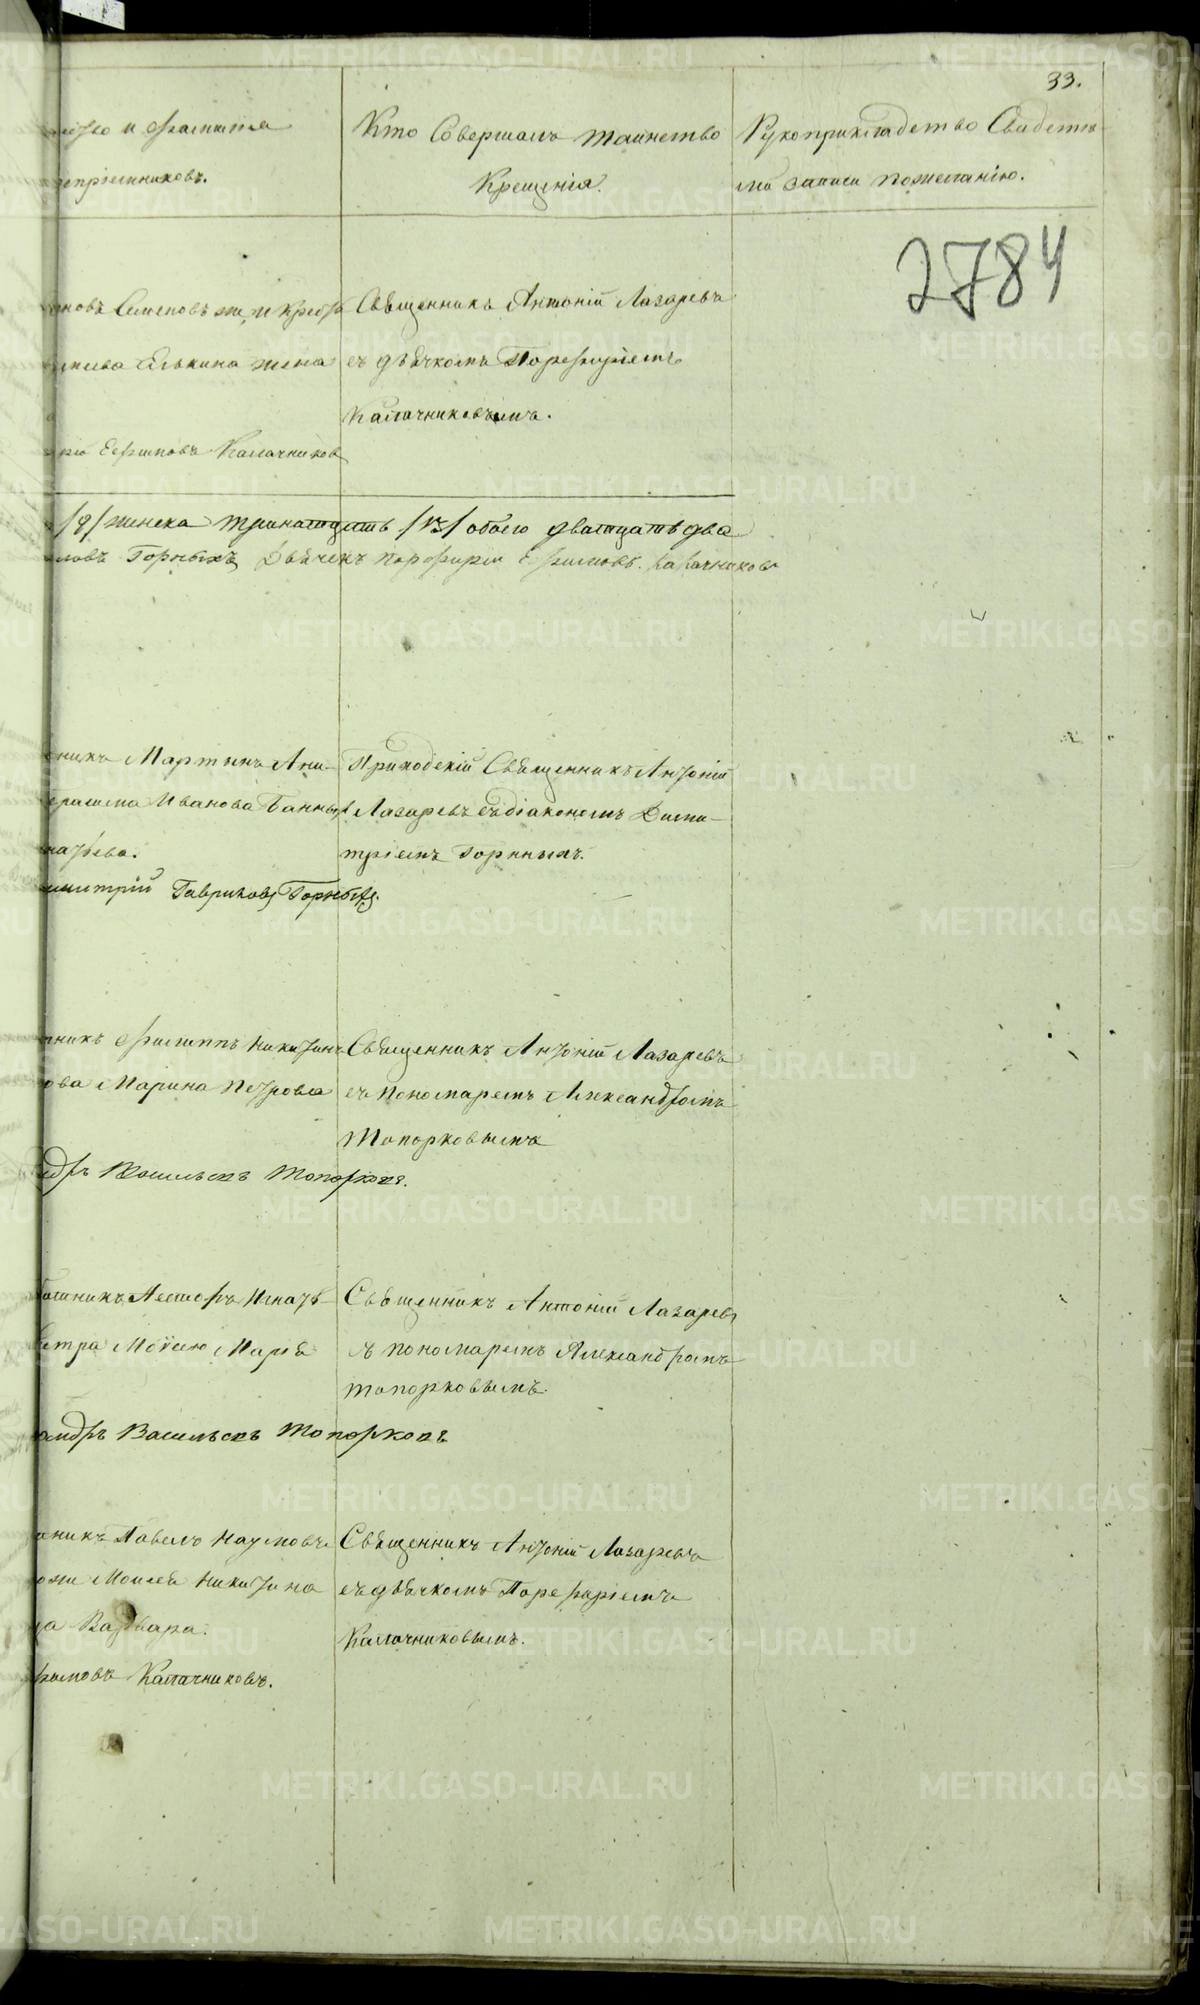 33.
и фамилiя
воспрiемниковъ.
Кто Совершалъ таинство
Крещенiя.
Рукоприкладство Свидете-
ли записи пожеланiю.
2784
новъ Семеновъ же, и Кресть
Елькина жена
Ефимовъ Калачников
Священникъ Антонiй Лазаревъ
съ дьячкомъ Порфирiемъ
Калачниковымъ.
/9/ женска тринатцать /13/ обоего дватцать два
Горныхъ Дьячекъ Порфирiи Ефимовъ Калачников
никъ Мартынъ Ани-
Иванова Банных
натьева.
митрiй Гавриловъ Горныхъ.
Приходскiй Священникъ Антонiй
Лазаревъ съ дiакономъ Дими-
трiемъ Горныхъ.
никъ Филиппъ Никитинъ
ова Марина Петрова
ндръ Васильевъ Топорковъ.
Священникъ Антонiй Лазаревъ
съ пономаремъ Александромъ
Топорковымъ
Несторъ Игнать-
етра Мария
андръ Васильевъ Топорковъ
Священникъ Антонiй Лазаревъ
съ пономаремъ Александромъ
топорковымъ.
никъ Павелъ Наумовъ
Моисея Никитина
ца Варвара.
фимовъ Калачниковъ.
Священникъ Антонiй Лазаревъ
съ дьячкомъ Порфирiемъ
Калачниковымъ.
METRIKI.GASO-URAL.RU